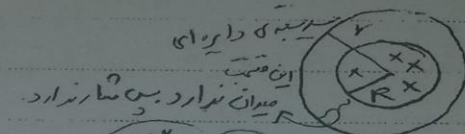 سیم‌پیچه‌ی دایره‌ای
این قسمت
میدان ندارد پس شار ندارد.
r
R